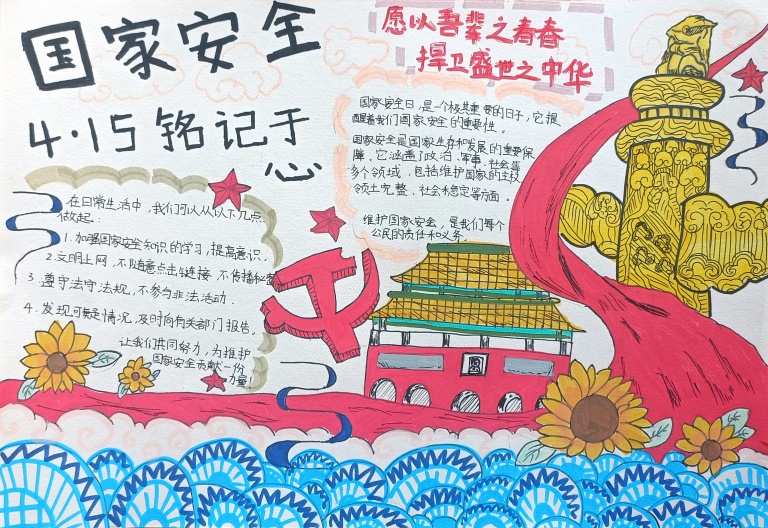 国家安全
4·15铭记于
心
愿以吾辈之青春
捍卫盛世之中华
国家安全日，是一个极其重要的日子，它提
醒着我们国家安全的重要性。
国家安全是国家生存和发展的重要保
障，它涵盖了政治、军事、社会等
多个领域，包括维护国家的主权
领土完整、社会稳定等方面。
维护国家安全，是我们每个
公民的责任和义务。
在日常生活中，我们可以从以下几点
做起：
1. 加强国家安全知识的学习，提高意识.
2. 文明上网，不随意点击链接，不传播秘密
3. 遵守法守法规，不参与非法活动.
4. 发现可疑情况，及时向有关部门报告.
让我们共同努力，为维护
国家安全贡献一份
力量！